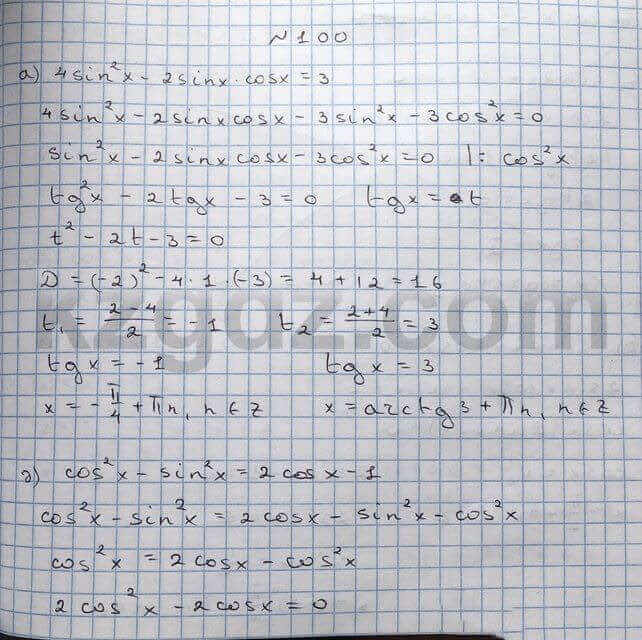 №100
а) 4sin²x - 2sinx·cosx = 3
4sin²x - 2sinxcosx - 3sin²x - 3cos²x = 0
sin²x - 2sinx cosx - 3cos²x = 0 |: cos²x
tg²x - 2tgx - 3 = 0 tgx = t
t² - 2t - 3 = 0
D = (-2)² - 4·1·(-3) = 4 + 12 = 16
t₁ = (2-4)/2 = -1 t₂ = (2+4)/2 = 3
tgx = -1 tgx = 3
x = -π/4 + πn, n∈Z x = arctg3 + πn, n∈Z
д) cos²x - sin²x = 2cosx - 1
cos²x - sin²x = 2cosx - sin²x - cos²x
cos²x = 2cosx - cos²x
2cos²x - 2cosx = 0
kzgdz.com